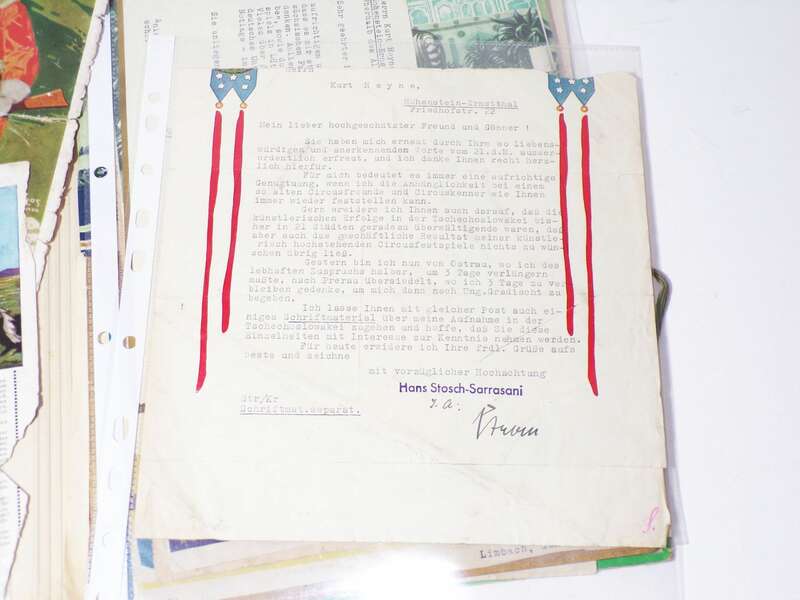 Kurt H e y n e ,
Hohenstein-Ernstthal
Friedhofstr. 22
Mein lieber hochgeschätzter Freund und Gönner !
Sie haben mich erneut durch Ihre so liebens-
würdigen und anerkennenden Worte vom 21.d.M. ausser-
ordentlich erfreut, und ich danke Ihnen recht herz-
lich hierfür.
Für mich bedeutet es immer eine aufrichtige
Genugtuung, wenn ich die Anhänglichkeit bei einem
so alten Circusfreunde und Circuskenner wie Ihnen
immer wieder feststellen kann.
Gern erwidere ich Ihnen auch darauf, daß die
künstlerischen Erfolge in der Tschechoslowakei bis-
her in 21 Städten geradezu überwältigende waren, daß
aber auch das geschäftliche Resultat meiner künstle-
risch hochstehenden Circusfestspiele nichts zu wün-
schen übrig ließ.
Gestern bin ich nun von Ostrau, wo ich des
lebhaften Zuspruchs halber, um 3 Tage verlängern
mußte, nach Prerau übersiedelt, wo ich 3 Tage zu ver
bleiben gedenke, um mich dann nach Ung.Hradischt zu
begeben.
Ich lasse Ihnen mit gleicher Post auch ei-
niges Schriftmaterial über meine Aufnahme in der
Tschechoslowakei zugehen und hoffe, daß Sie diese
Einzelheiten mit Interesse zur Kenntnis nehmen werden.
Für heute erwidere ich Ihre frdl. Grüße aufs
beste und zeichne
mit vorzüglicher Hochachtung
Hans Stosch-Sarrasani
Str/Kr
Schriftmat.separat.
Limbach,